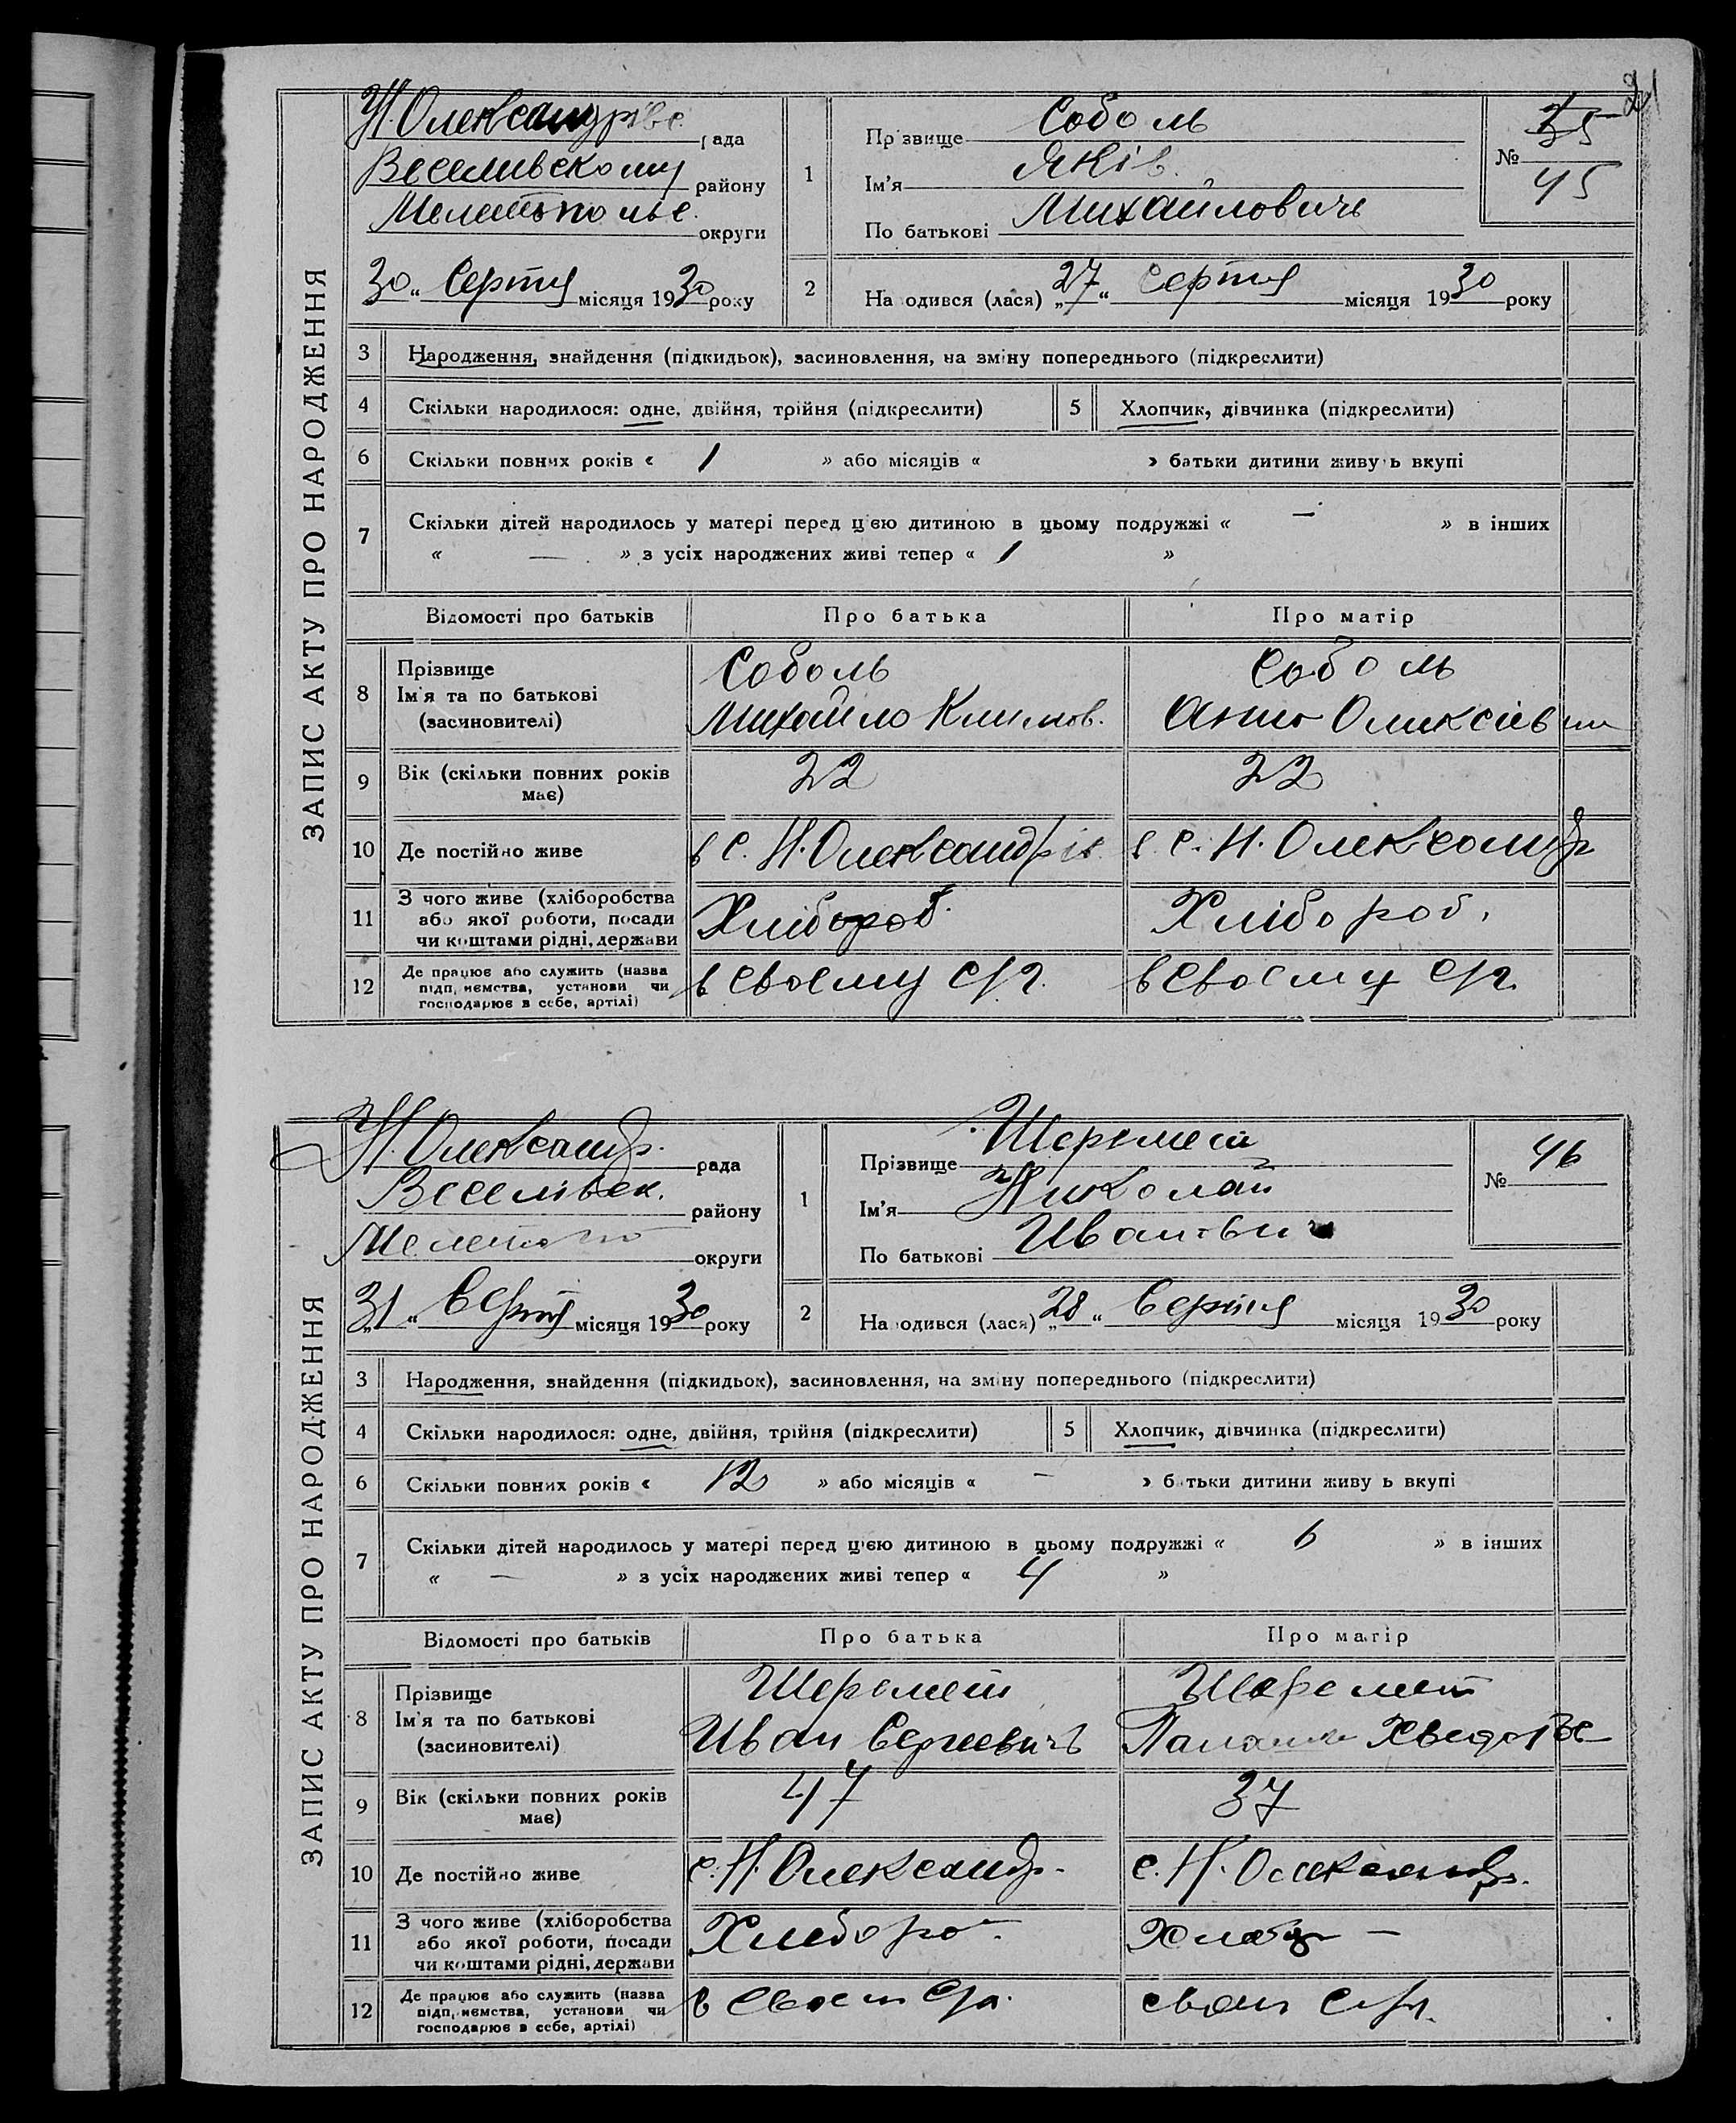 21
ЗАПИС АКТУ ПРО НАРОДЖЕННЯ
Н. Олександрівс. рада
Веселивскому району
Мелітопольс. округи
30 " Серпня місяця 1930 року
1 Прізвище Соболь
Ім'я Яків.
По батькові Михайловичь
№ 35
45
2 Народився (лася) „27" Серпня місяця 1930 року
3 Народження, знайдення (підкидьок), засиновлення, на зміну попереднього (підкреслити)
4 Скільки народилося: одне, двійня, трійня (підкреслити) 5 Хлопчик, дівчинка (підкреслити)
6 Скільки повних років « 1 » або місяців « » батьки дитини живуть вкупі
7 Скільки дітей народилось у матері перед цією дитиною в цьому подружжі « — » в інших
« — » з усіх народжених живі тепер « 1 »
Відомості про батьків Про батька Про матір
8 Прізвище Соболь Соболь
Ім'я та по батькові Михайло Климов. Олексіевни
(засиновителі)
9 Вік (скільки повних років має) 22 22
10 Де постійно живе в с. Н. Олександрів. в с. Н. Олександр
11 З чого живе (хліборобства або якої роботи, посади чи коштами рідні, держави Хлібороб. Хлібороб.
12 Де працює або служить (назва підприємства, установи чи господарює в себе, артілі) в своєму с/г. в своєму с/г.
ЗАПИС АКТУ ПРО НАРОДЖЕННЯ
Н. Олександр. рада
Веселівск. району
округи
„31" Серпня місяця 1930 року
1 Прізвище Шеремет
Ім'я Николай
По батькові Иванович
№ 46
2 Народився (лася) „28" Серпня місяця 1930 року
3 Народження, знайдення (підкидьок), засиновлення, на зміну попереднього (підкреслити)
4 Скільки народилося: одне, двійня, трійня (підкреслити) 5 Хлопчик, дівчинка (підкреслити)
6 Скільки повних років « 12 » або місяців « — » батьки дитини живуть вкупі
7 Скільки дітей народилось у матері перед цією дитиною в цьому подружжі « 6 » в інших
« — » з усіх народжених живі тепер « 4 »
Відомості про батьків Про батька Про матір
8 Прізвище Шеремет Шеремет
Ім'я та по батькові Иван Сергеевичь
(засиновителі)
9 Вік (скільки повних років має) 47 37
10 Де постійно живе с. Н. Олександр. с. Н. Олександр.
11 З чого живе (хліборобства або якої роботи, посади чи коштами рідні, держави Хлеборо
12 Де працює або служить (назва підприємства, установи чи господарює в себе, артілі)